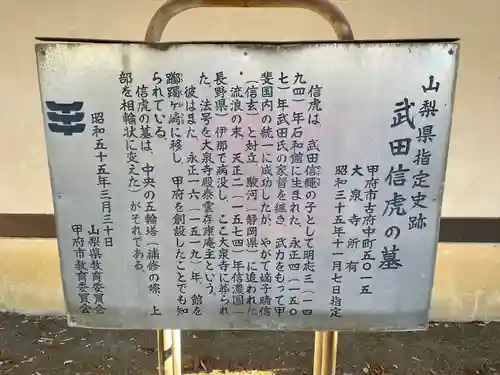 山梨県指定史跡
武田信虎の墓
甲府市古府中町五〇一五
大泉寺所有
昭和三十五年十一月七日指定
信虎は、武田信縄の子として明応三(一四
九四)年石和館に生まれた。永正四(一五〇
七)年武田氏の家督を継ぎ、武力をもって甲
斐国内の統一に成功したが、やがて嫡子晴信
(信玄)と対立、駿河(静岡県)に追われた
流浪の末、天正二(一五七四)年信濃国(
長野県)伊那で病没し、ここ大泉寺に葬られ
た。法号を大泉寺殿泰雲存康庵主という。
彼はまた、永正一六(一五一九)年、館を
躑躅ヶ崎に移し、甲府を創設したことでも知
られている。
信虎の墓は、中央の五輪塔(補修の際、上
部を相輪状に変えた)がそれである。
昭和五十五年三月三十日
山梨県教育委員会
甲府市教育委員会